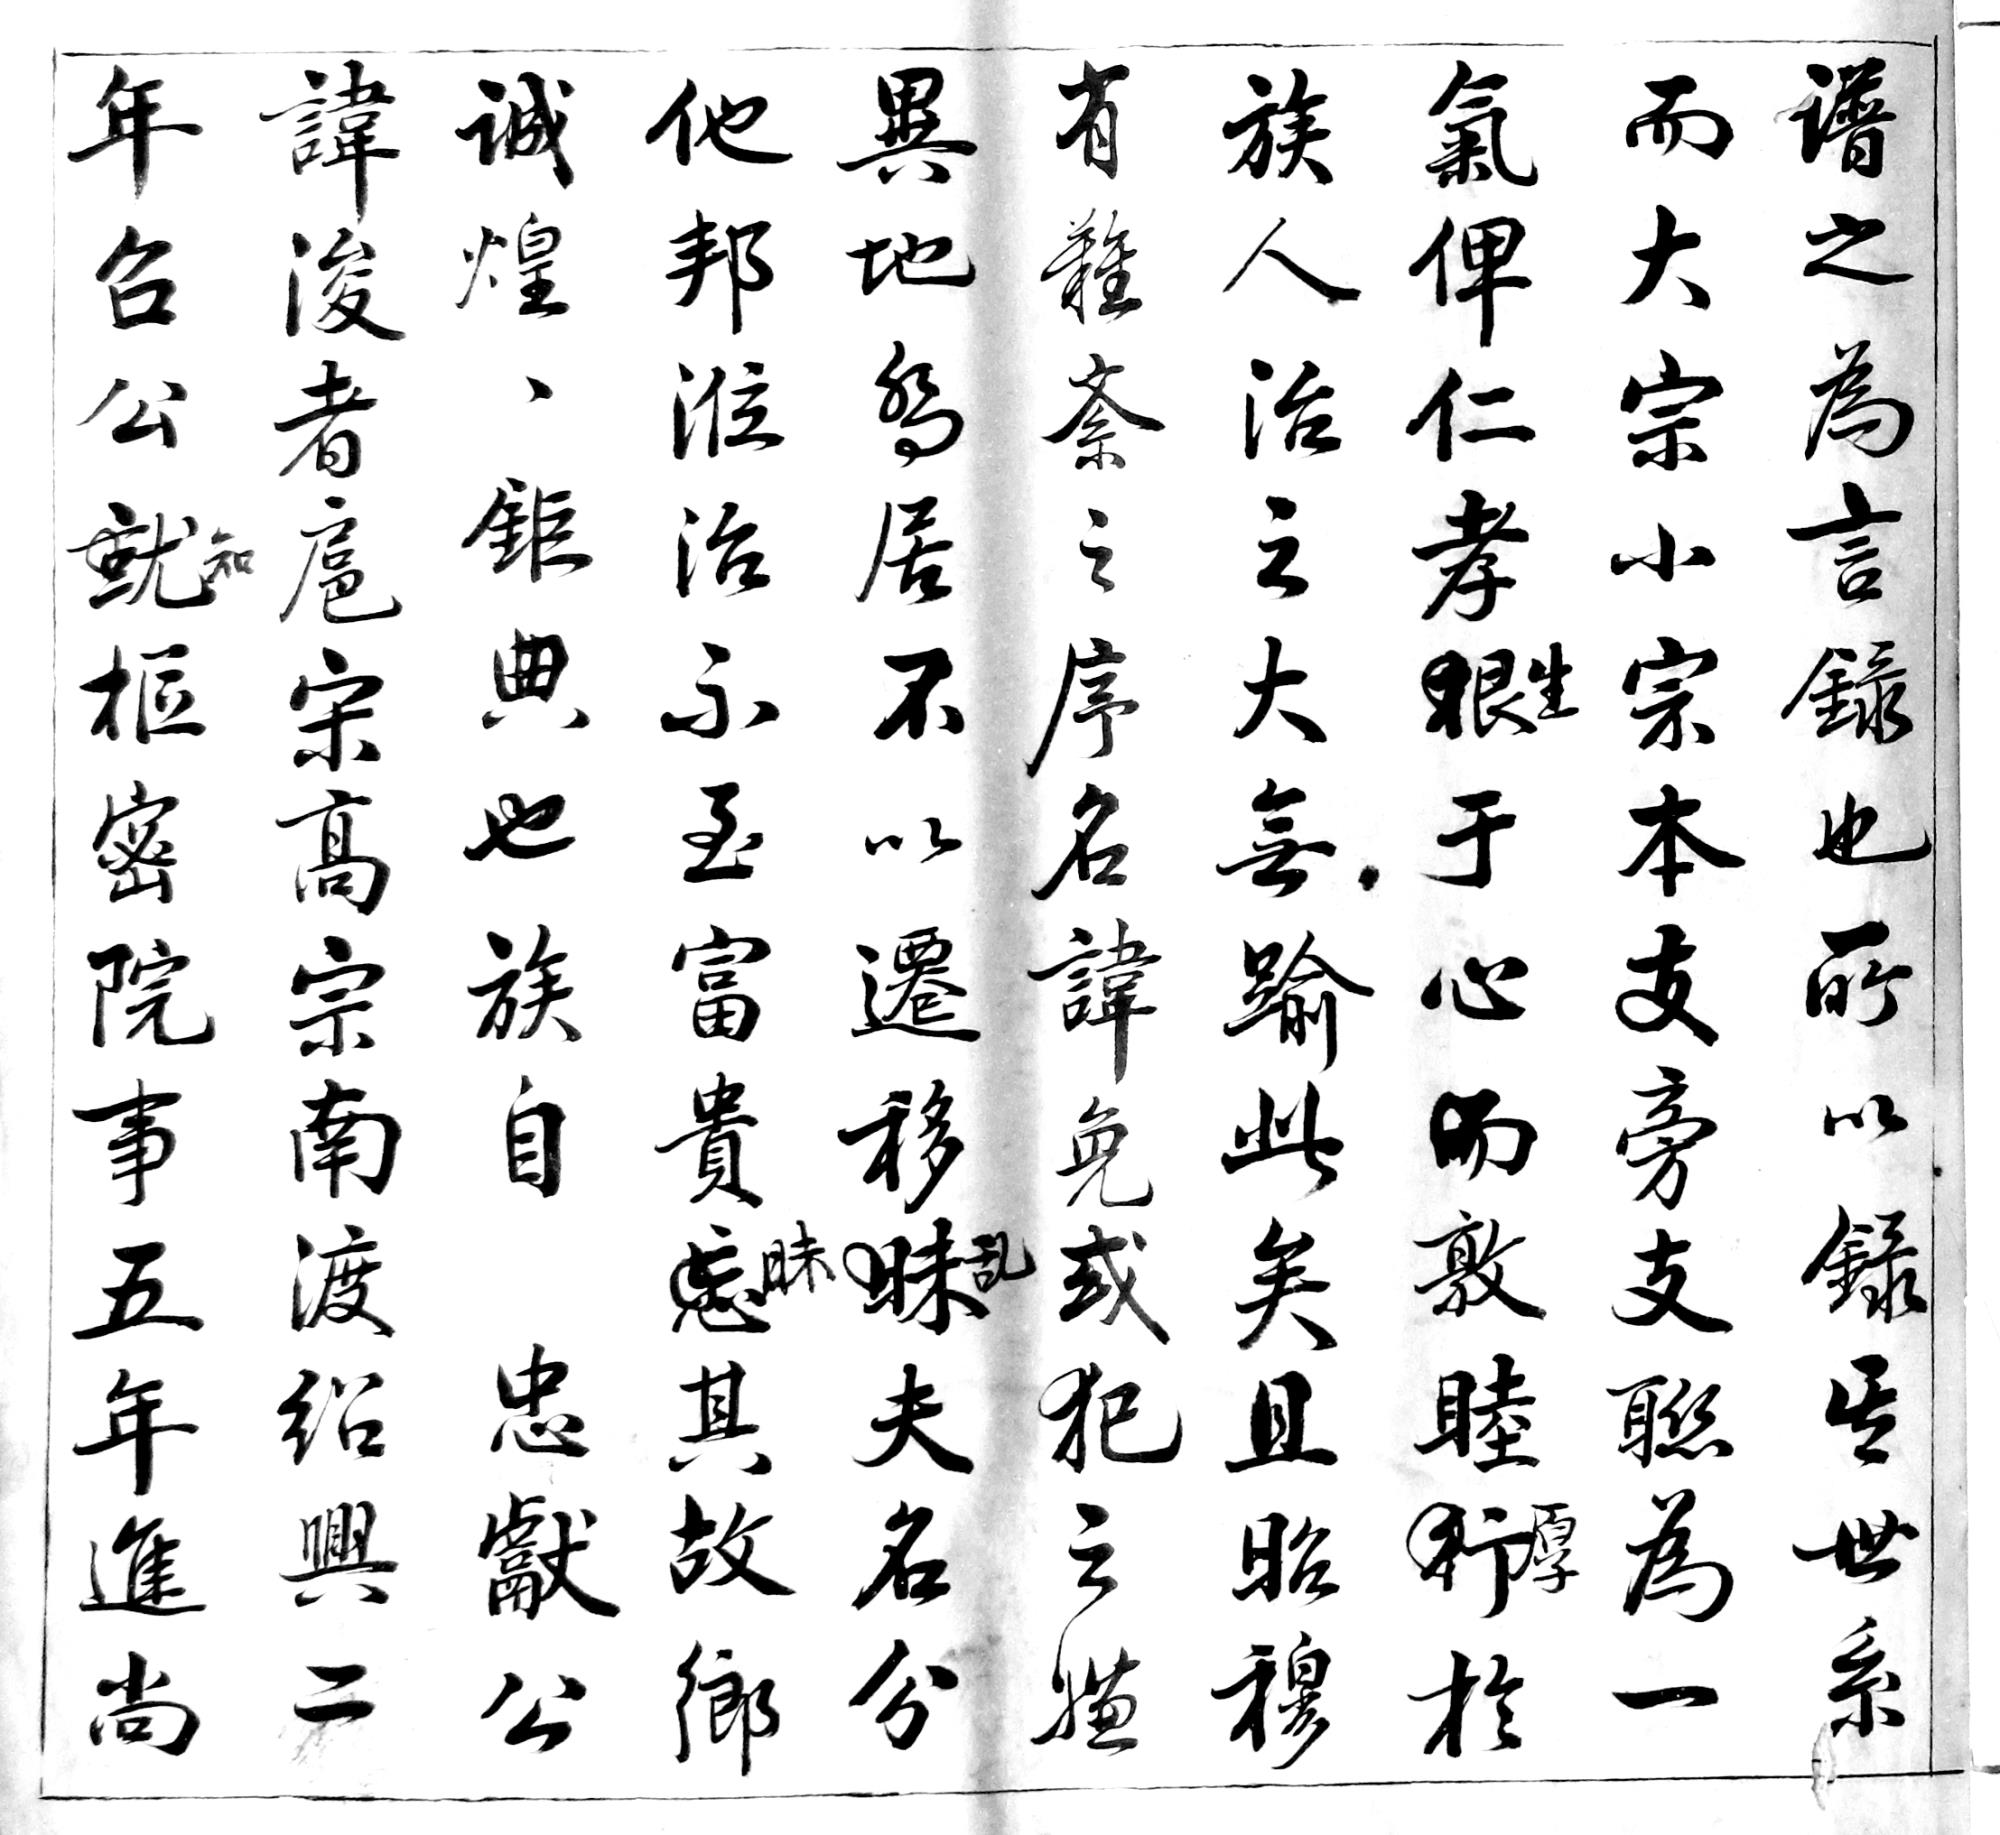 譜之為言録也所以録世系
而大宗小宗本支旁支聯為一
氣俾仁孝根生于心而敦睦行厚於
族人治之大無踰此矣且昭穆
有難紊之序名諱免或犯之嫌
異地居不以遷移昧乱夫名分
他邦涖治不至富貴忘昧其故鄉
誠煌、鉅典也族自 忠獻公
諱浚者扈宋高宗南渡紹興二
年召公就知樞密院事五年進尚